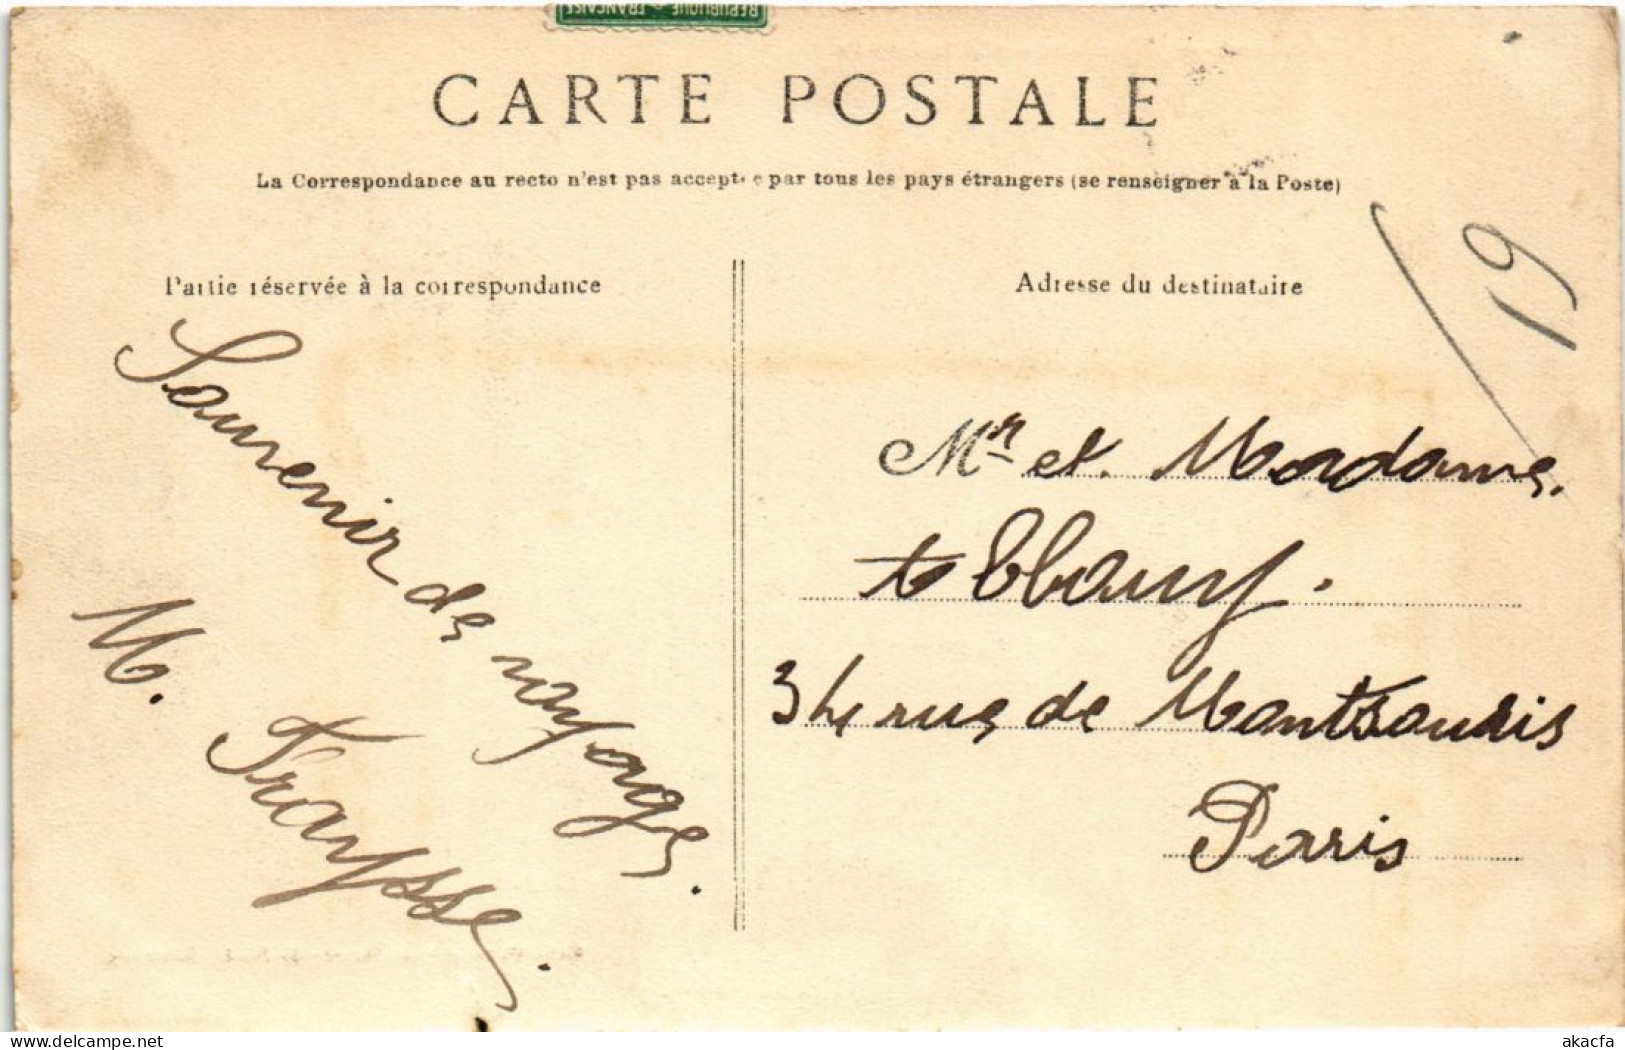 REPUBLIQUE FRANCAISE
CARTE POSTALE
La Correspondance au recto n'est pas acceptée par tous les pays étrangers (se renseigner à la Poste)
Partie réservée à la correspondance
Souvenir de voyage.
M. Fraysse.
Adresse du destinataire
19
Mr et Madame
34 rue de Montsouris
Paris
akacfa